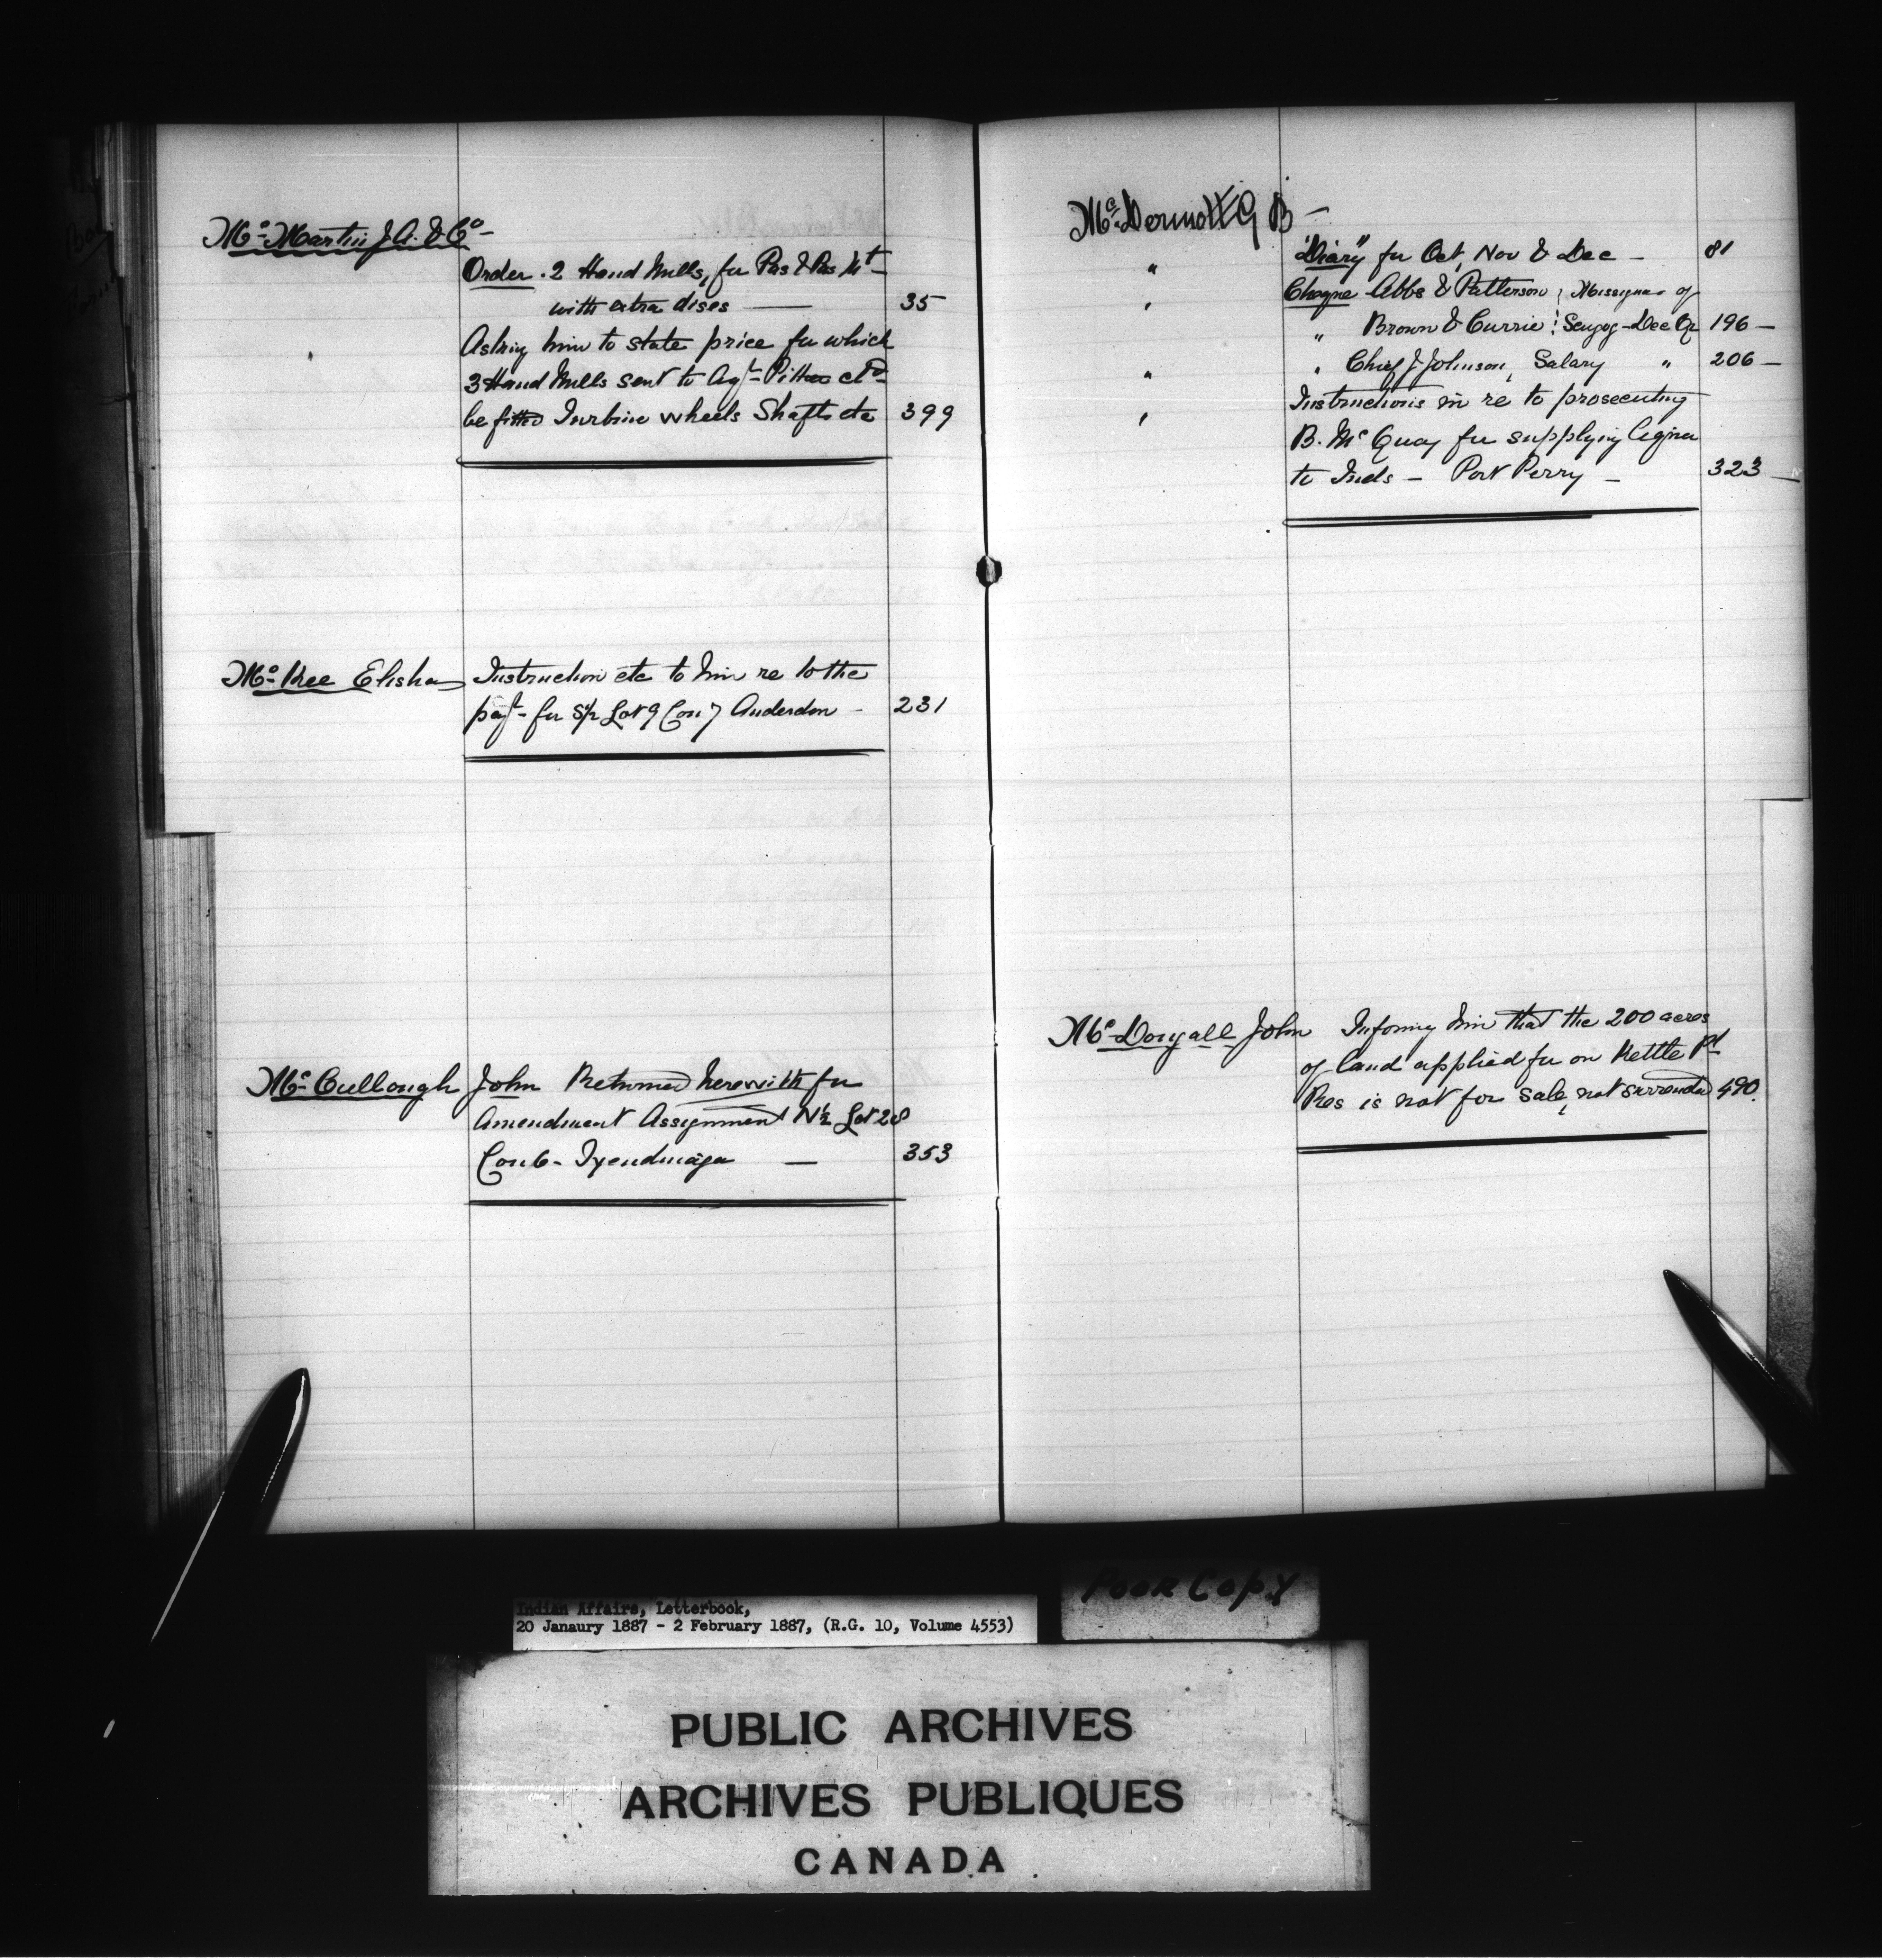 Mc Martin J. A. & Co -
Order . 2 Hand Mills, for Pas & Pas Mt -
with extra dises — 35
Asking him to state price for which
3 Hand Mills sent to Agt Pither cld
be fitted Turbine wheels Shafts etc 399
Mc Kee Elisha Instruction etc to him re to the
payt - for S½ Lot 9 Con 7 Anderdon - 231
Mc Cullough John Returned herewith for
Amendment Assignment N½ Lot 28
Con 6 - Tyendinaga — 353
Mc Dermott G B -
"Diary" for Oct, Nov & Dec - 81
" Cheque Abbs & Patterson ; Missignas of
' " Brown & Currie : Scugog - Dec Qr 196 -
" " Chief J Johnson, Salary " 206 -
' Instructions in re to prosecuting
B. Mc Quay for supplying liquor
to Inds - Port Perry - 323 -
Mc Dougall John Informg him that the 200 acres
of land applied for on Kettle Pt
Res is not for sale, not surrendd 490.
Poor Copy
Indian Affairs, Letterbook,
20 Janaury 1887 - 2 February 1887, (R.G. 10, Volume 4553)
PUBLIC ARCHIVES
ARCHIVES PUBLIQUES
CANADA